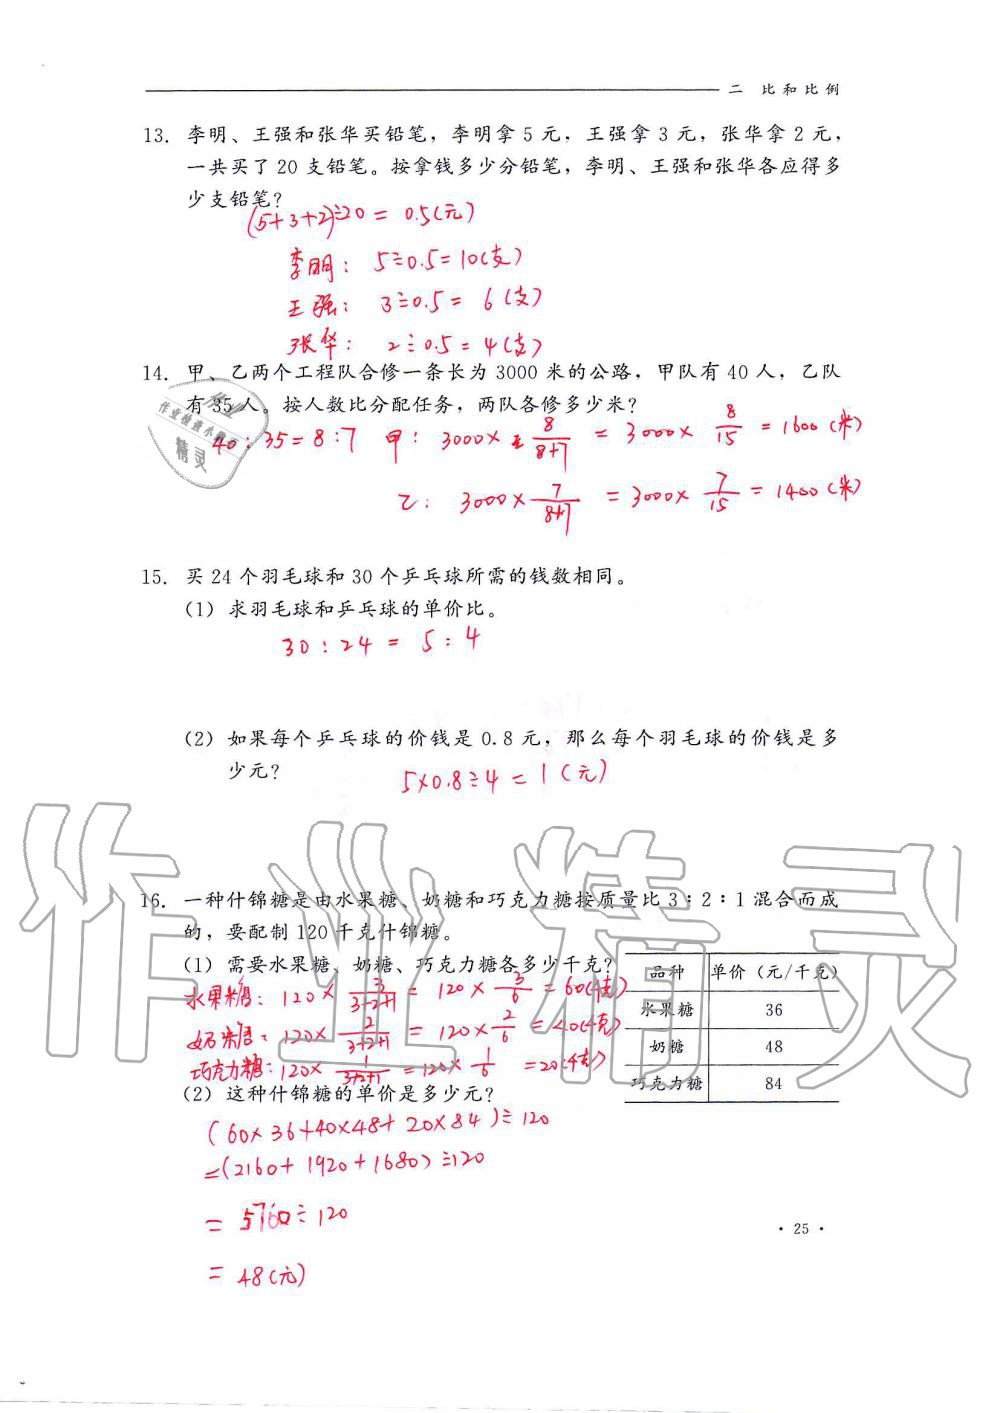 二 比和比例
13. 李明、王强和张华买铅笔，李明拿 5 元，王强拿 3 元，张华拿 2 元，
一共买了 20 支铅笔。按拿钱多少分铅笔，李明、王强和张华各应得多
少支铅笔？
(5+3+2)÷20=0.5(元)
李明：5÷0.5=10(支)
王强：3÷0.5=6(支)
张华：2÷0.5=4(支)
14. 甲、乙两个工程队合修一条长为 3000 米的公路，甲队有 40 人，乙队
有 35 人。按人数比分配任务，两队各修多少米？
40:35=8:7 甲：3000×8/(8+7)=3000×8/15=1600(米)
乙：3000×7/(8+7)=3000×7/15=1400(米)
15. 买 24 个羽毛球和 30 个乒乓球所需的钱数相同。
(1) 求羽毛球和乒乓球的单价比。
30:24=5:4
(2) 如果每个乒乓球的价钱是 0.8 元，那么每个羽毛球的价钱是多
少元？
5×0.8÷4=1(元)
16. 一种什锦糖是由水果糖、奶糖和巧克力糖按质量比 3∶2∶1 混合而成
的，要配制 120 千克什锦糖。
(1) 需要水果糖、奶糖、巧克力糖各多少千克？
水果糖：120×3/(3+2+1)=120×3/6=60(千克)
奶糖：120×2/(3+2+1)=120×2/6=40(千克)
巧克力糖：120×1/(3+2+1)=120×1/6=20(千克)
品种 单价（元/千克）
水果糖 36
奶糖 48
巧克力糖 84
(2) 这种什锦糖的单价是多少元？
(60×36+40×48+20×84)÷120
=(2160+1920+1680)÷120
=5760÷120
=48(元)
· 25 ·
作业检查小精灵
精灵
作业精灵